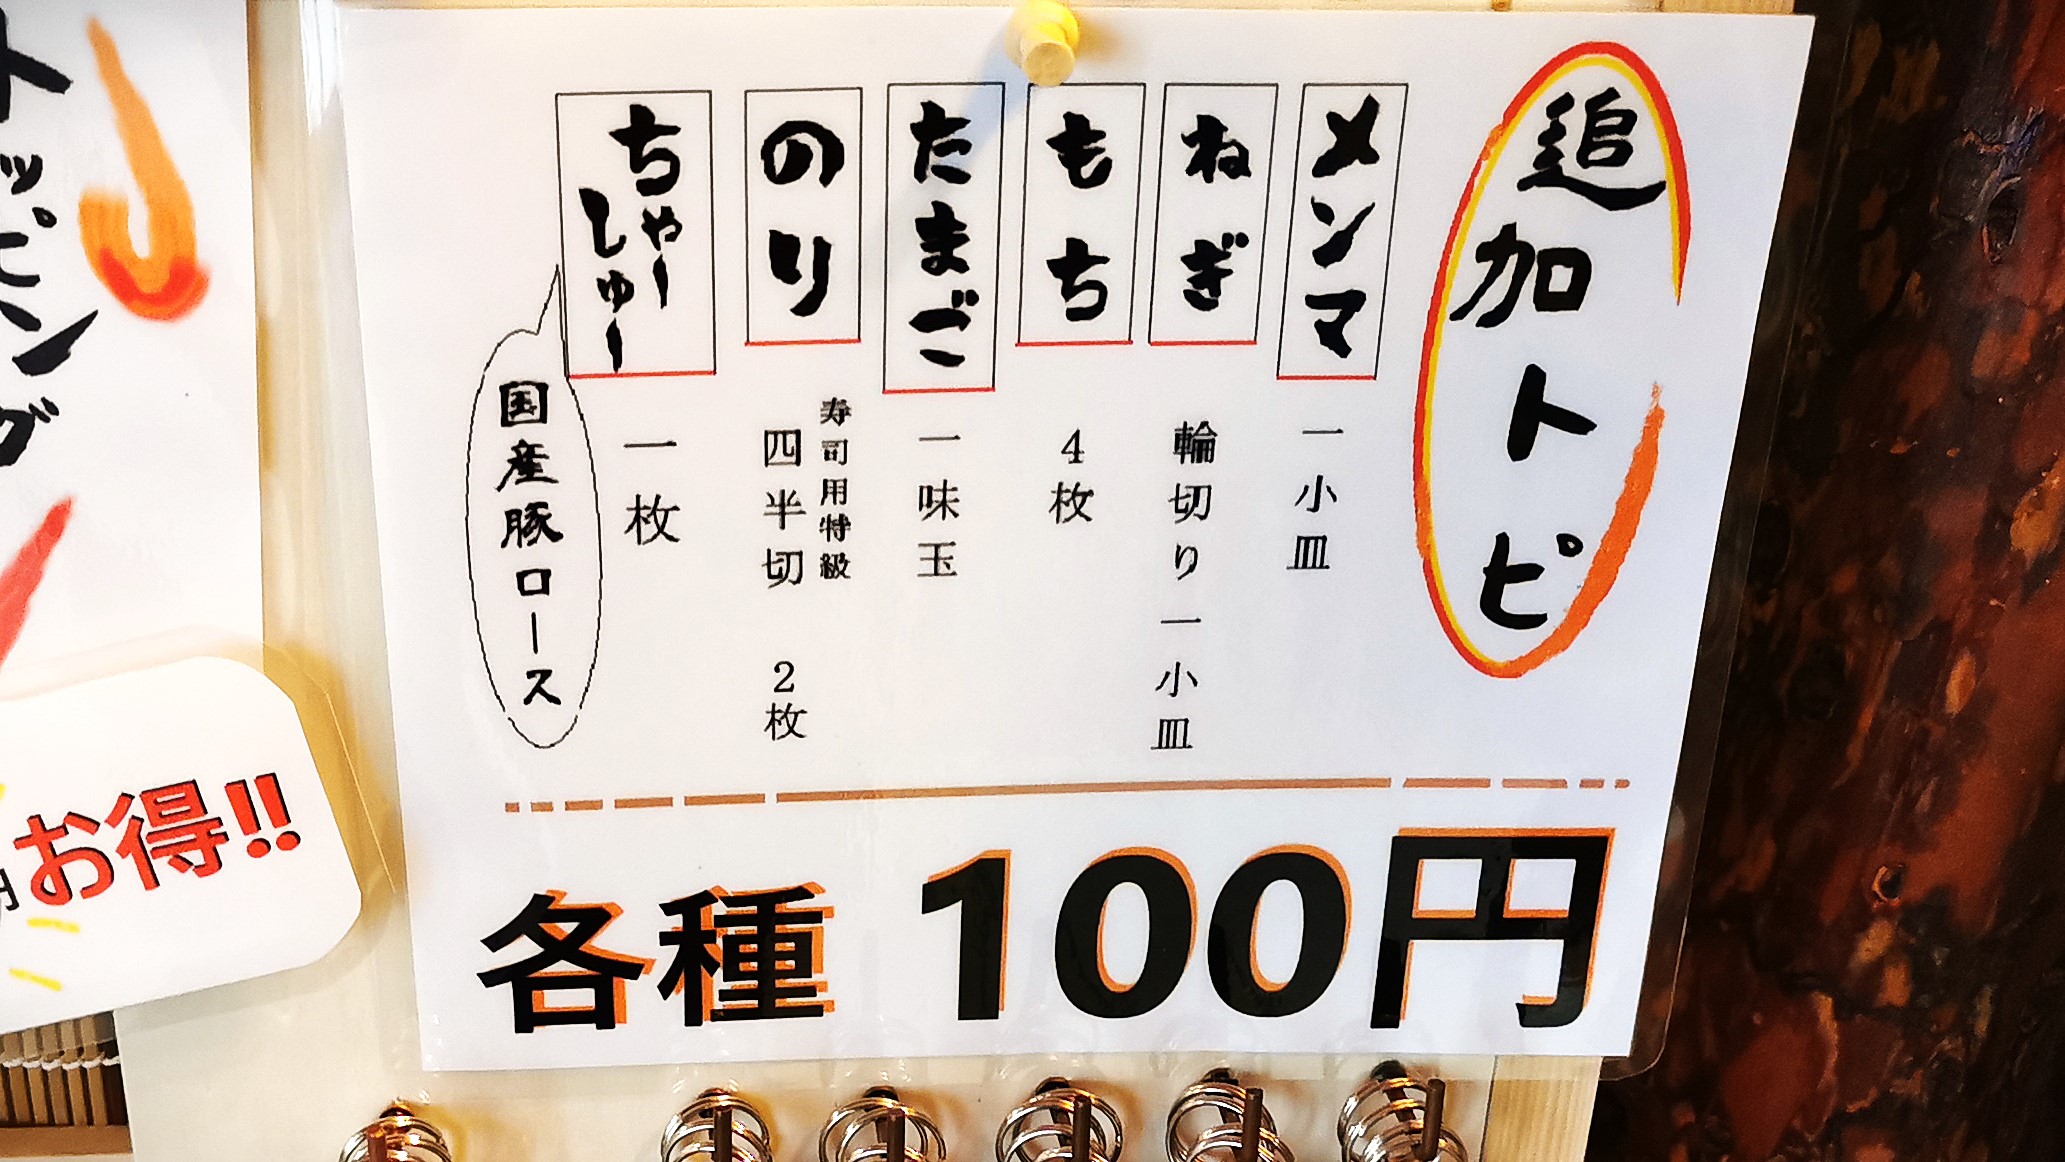 追加トピ
メンマ
一小皿
ねぎ
輪切り一小皿
もち
4枚
たまご
一味玉
のり
寿司用特級
四半切 2枚
ちゃー
しゅー
一枚
国産豚ロース
各種 100円
トッピング
お得!!